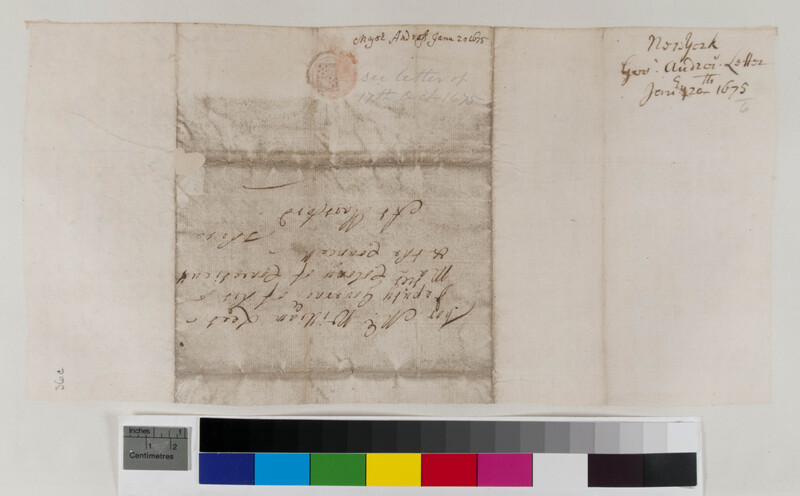 Major Andross Janu 20 1675
see letter of
17th Oct 1675
New York
Govr. Andros. Letter
Janry 20th 1675
6
Mr. William Leet
Deputy Governor of his
Maties Colony of Conecticutt
& the Councell
These
At Hartford
36c
Inches 1
1 2
Centimetres